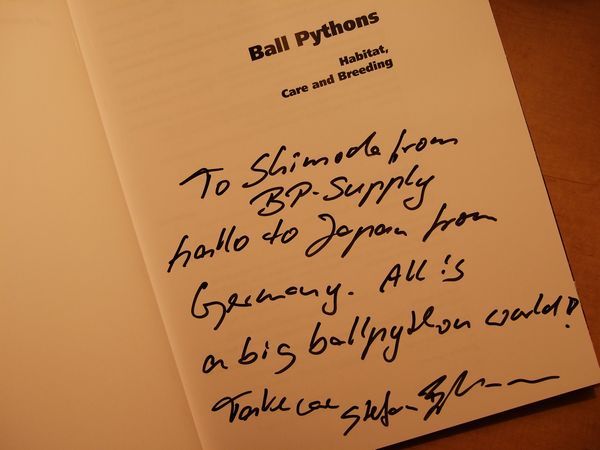 Ball Pythons
Habitat,
Care and Breeding
To Shimoda from
BP-Supply
hallo to Japan from
Germany. All is
a big ballpython world!
Take care Stefan